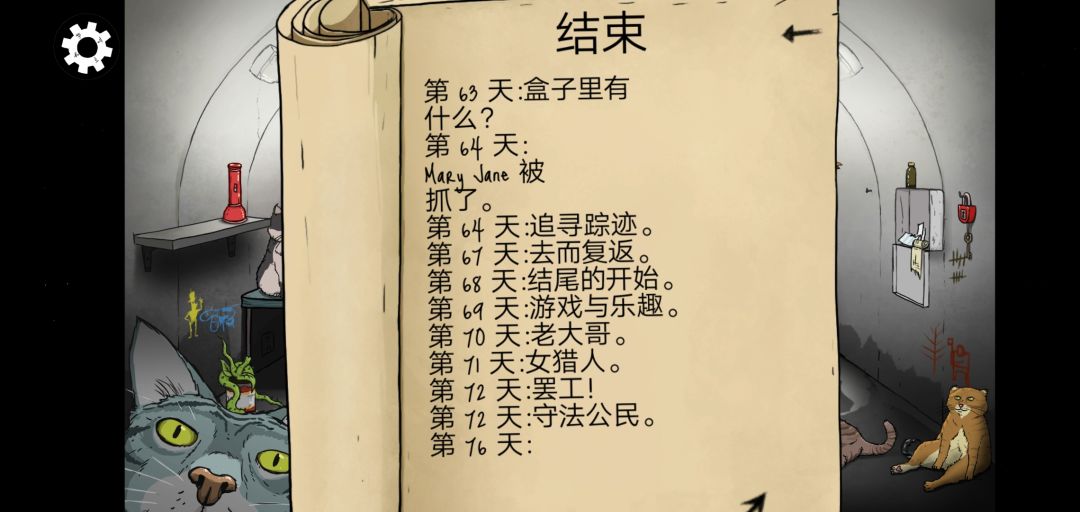 结束
第 63 天:盒子里有
什么?
第 64 天:
Mary Jane 被
抓了。
第 64 天:追寻踪迹。
第 67 天:去而复返。
第 68 天:结尾的开始。
第 69 天:游戏与乐趣。
第 70 天:老大哥。
第 71 天:女猎人。
第 72 天:罢工!
第 72 天:守法公民。
第 76 天: